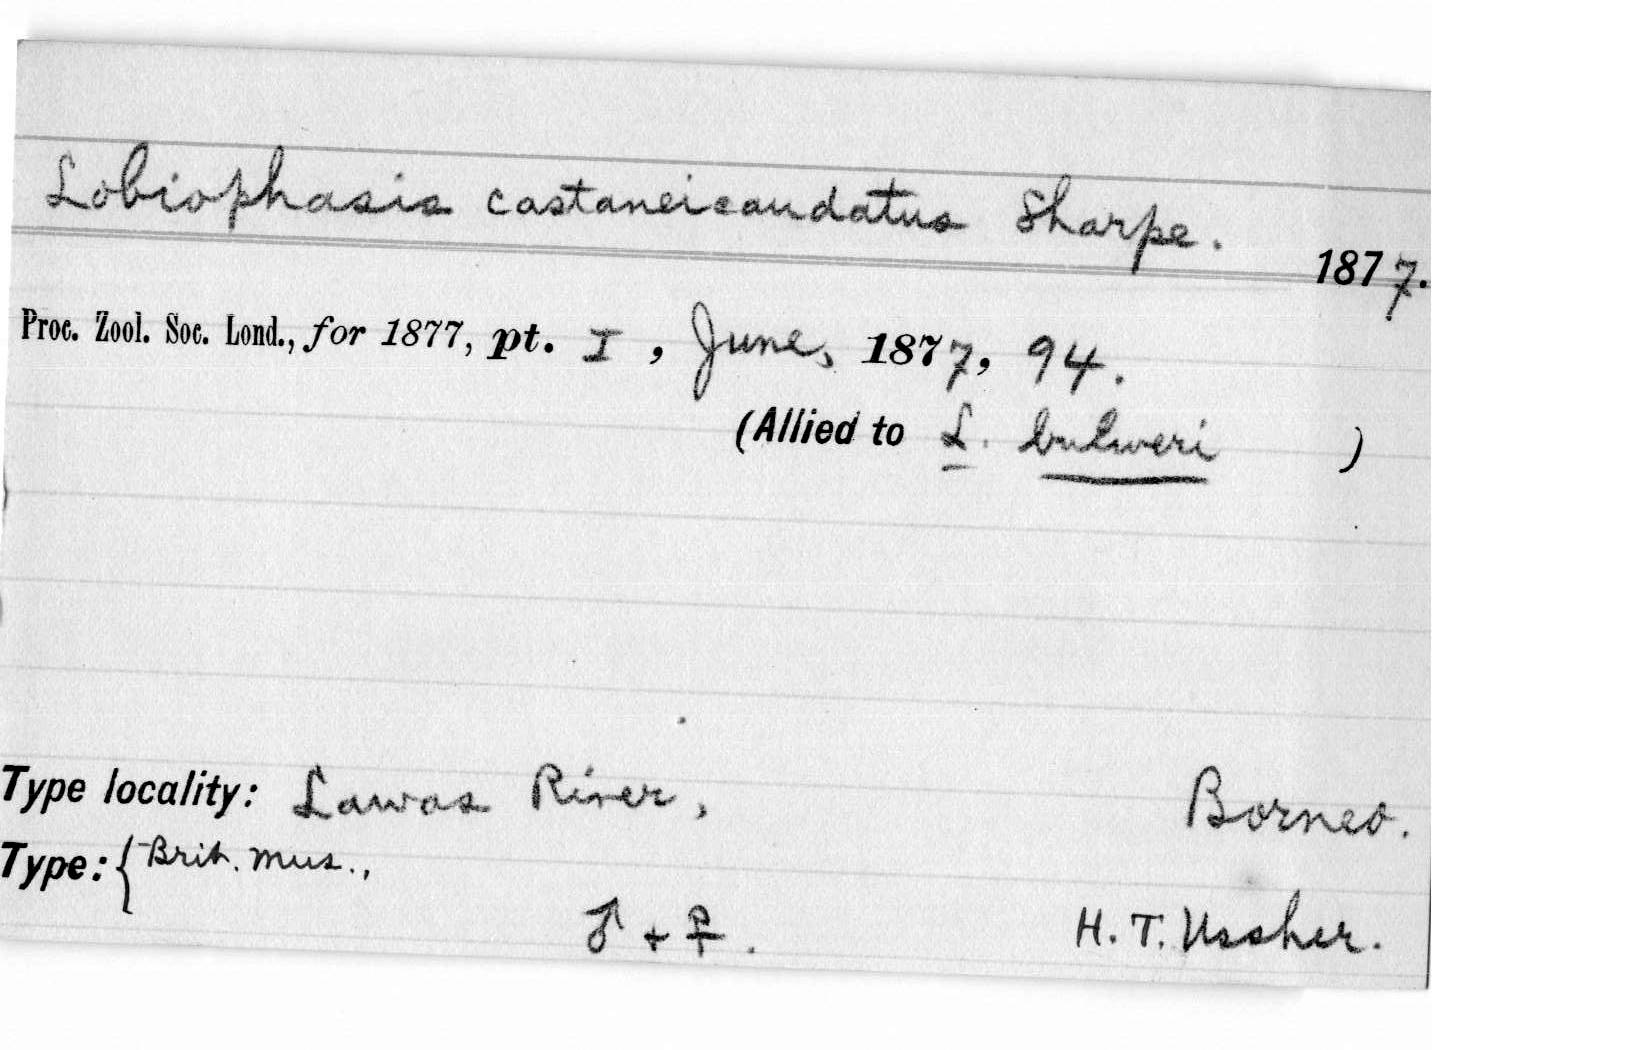 Lobiophasis castaneicaudatus Sharpe.
1877.
Proc. Zool. Soc. Lond., for 1877, pt. I, June, 1877, 94.
(Allied to L. bulweri )
Type locality: Lawas River, Borneo.
Type: { Brit. Mus.,
♂ + ♀. H. T. Ussher.